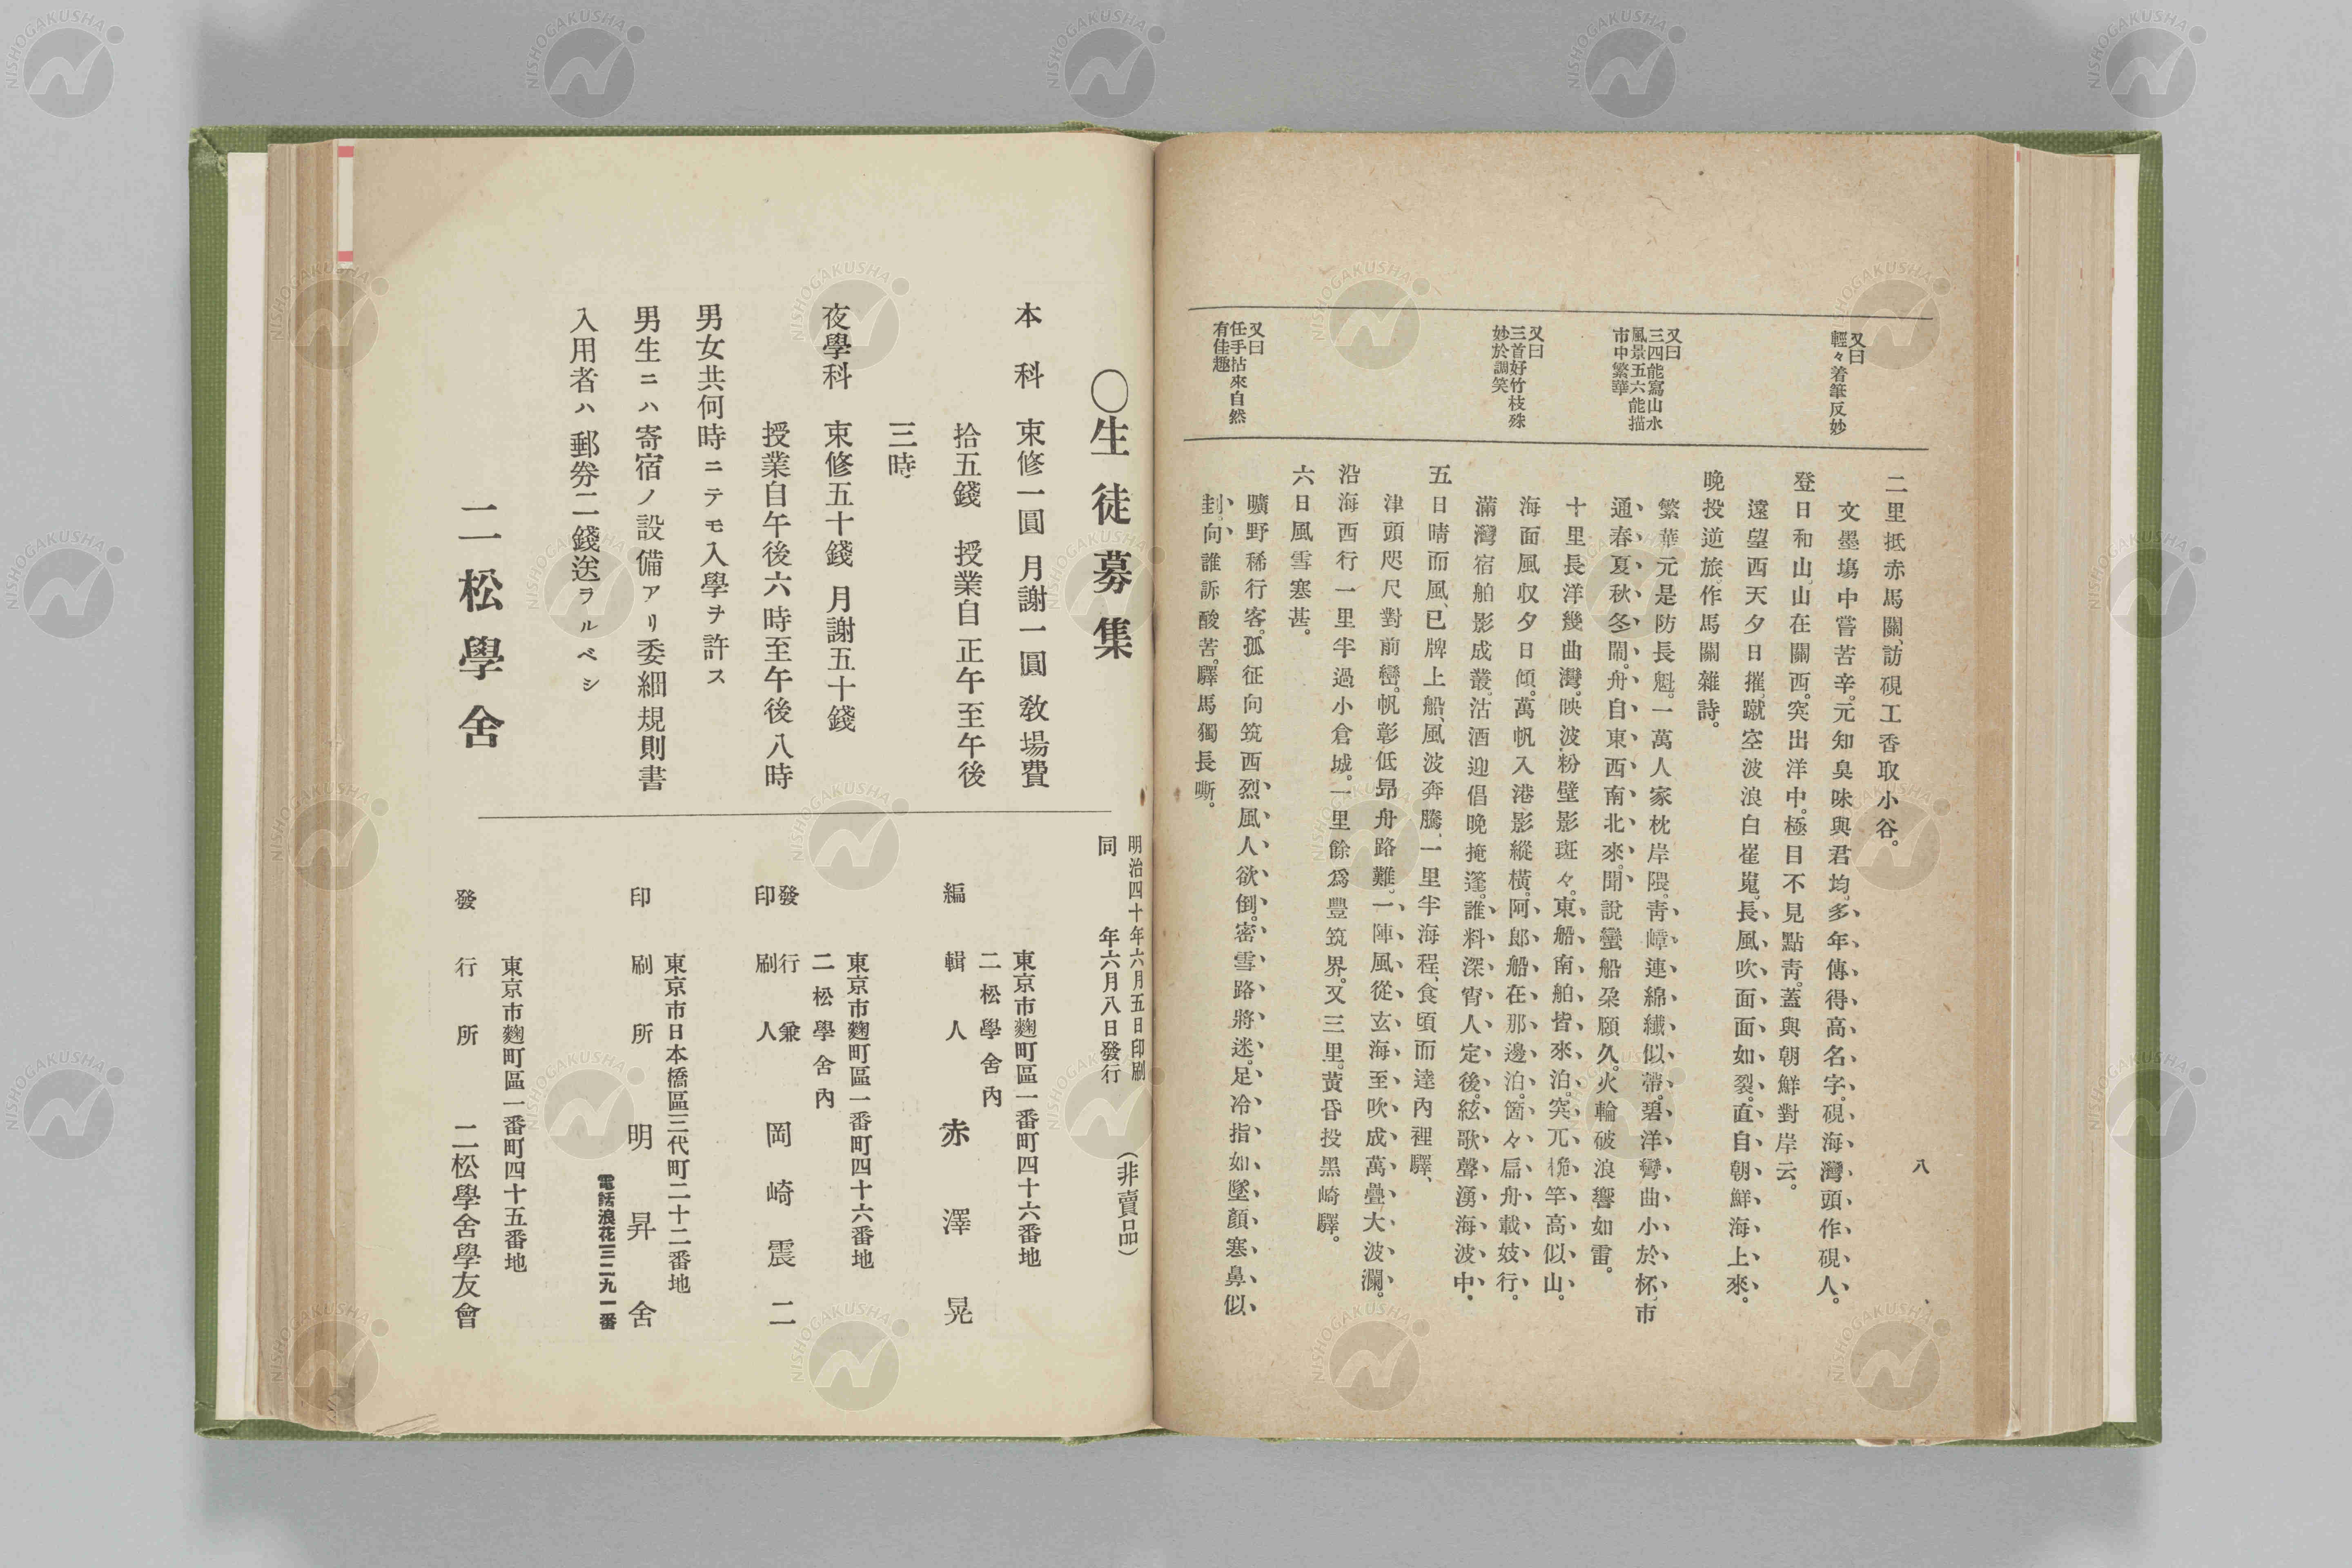 八
又曰
輕々着筆反妙
又曰
三四能寫山水
風景五六能描
市中繁華
又曰
三首好竹枝殊
妙於調笑
又曰
任手拈來自然
有佳趣
二里抵赤馬關、訪硯工香取小谷。
文墨塲中嘗苦辛。元知臭味與君均。多年傳得高名字。硯海灣頭作硯人。
登日和山、山在關西。突出洋中。極目不見點靑。蓋與朝鮮對岸云。
遠望西天夕日摧。蹴空波浪白崔嵬。長風吹面面如裂。直自朝鮮海上來。
晩投逆旅、作馬關雜詩。
繁華元是防長魁。一萬人家枕岸隈。靑嶂連綿纎似帶。碧洋彎曲小於杯。市
通春夏秋冬鬧。舟自東西南北來。聞說蠻船朶頤久。火輪破浪響如雷。
十里長洋幾曲灣。映波粉壁影斑々。東船南舶皆來泊。突兀桅竿高似山。
海面風収夕日傾。萬帆入港影縱橫。阿郎船在那邊泊。箇々扁舟載妓行。
滿灣宿舶影成叢。沽酒迎倡晩掩篷。誰料深宵人定後。絃歌聲湧海波中。
五日晴而風、已牌上船、風波奔騰、一里半海程、食頃而達內裡驛、
津頭咫尺對前巒。帆彰低昻舟路難。一陣風從玄海至。吹成萬疊大波瀾。
沿海西行一里半過小倉城。一里餘爲豐筑界。又三里。黃昏投黑崎驛。
六日風雪塞甚。
曠野稀行客。孤征向筑西。烈風人欲倒。密雪路將迷。足冷指如墜。顏塞鼻似
封。向誰訴酸苦。驛馬獨長嘶。
〇生徒募集
本科 束修一圓 月謝一圓 敎塲費
拾五錢 授業自正午至午後
三時
夜學科 束修五十錢 月謝五十錢
授業自午後六時至午後八時
男女共何時ニテモ入學ヲ許ス
男生ニハ寄宿ノ設備アリ委細規則書
入用者ハ郵券二錢送ラルベシ
二松學舍
明治四十年六月五日印刷
同年六月八日發行
(非賣品)
東京市麴町區一番町四十六番地
二松學舍內
編輯人 赤澤晃
東京市麴町區一番町四十六番地
二松學舍內
發行兼
印刷人 岡崎震二
東京市日本橋區三代町二十二番地
印刷所 明昇舍
電話浪花三二九一番
東京市麴町區一番町四十五番地
發行所 二松學舍學友會
NISHOGAKUSHA